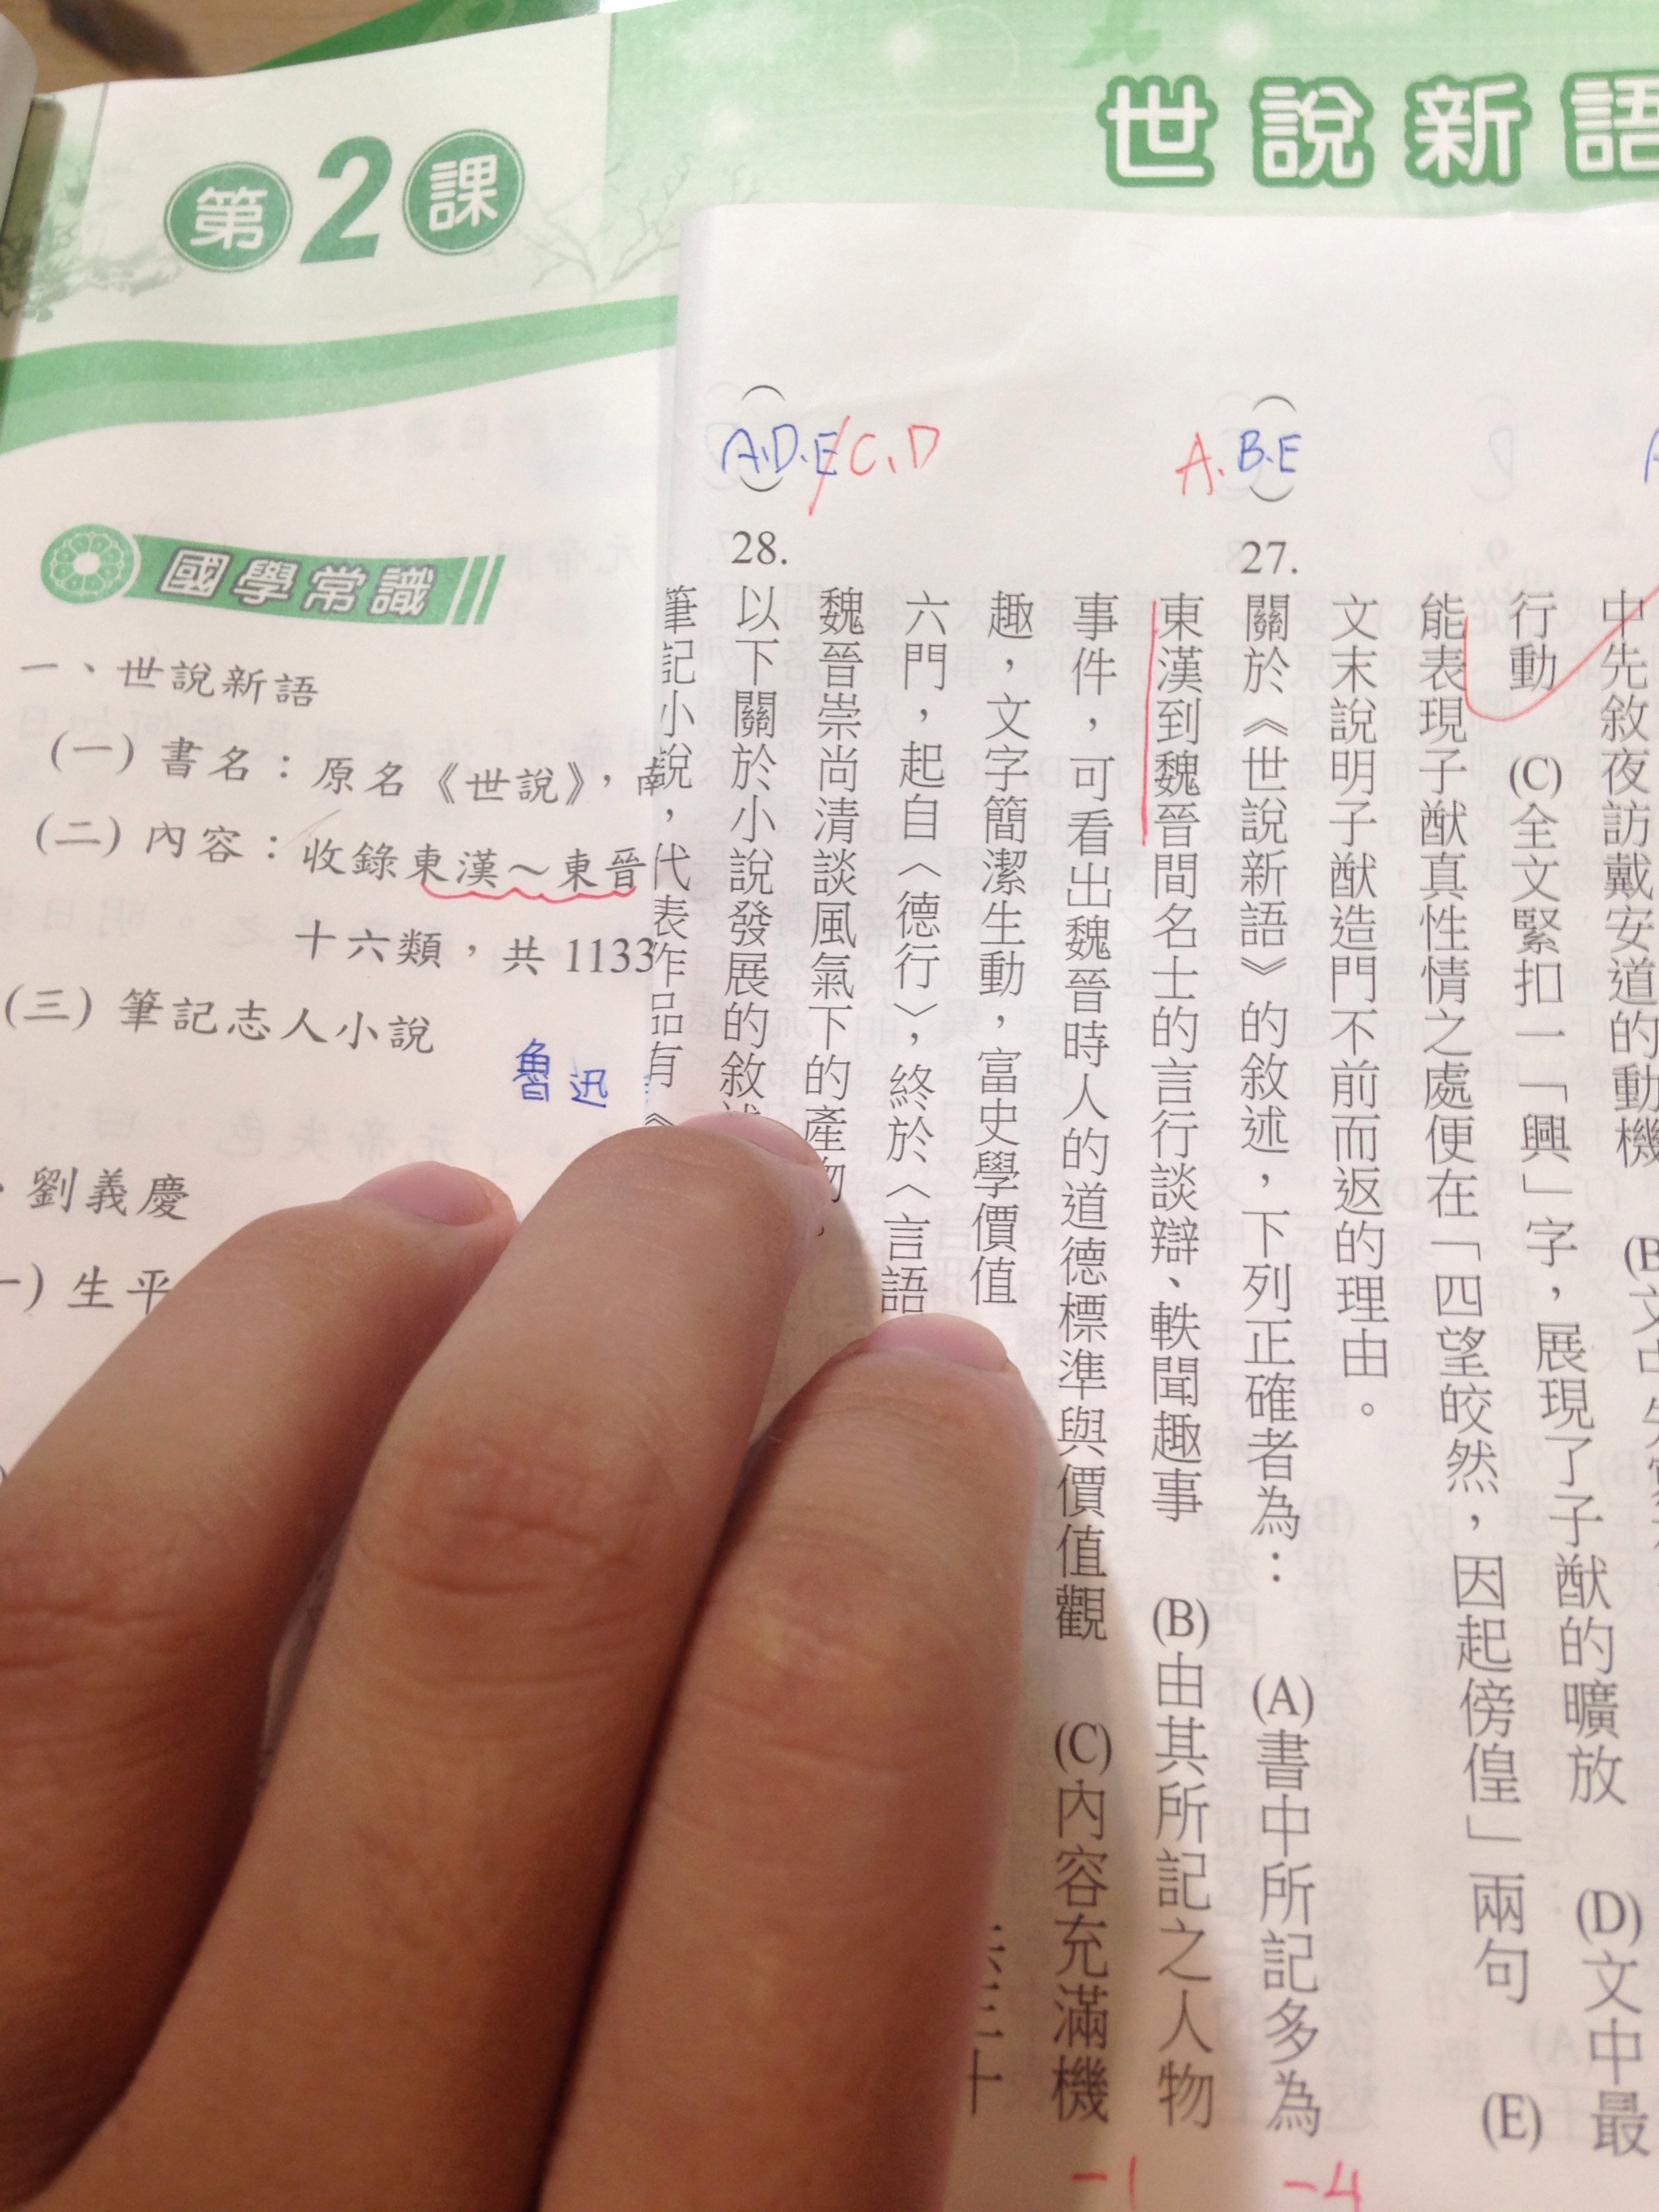 第2課
世說新語
國學常識
一、世說新語
(一)書名：原名《世說》，南
(二)內容：收錄東漢～東晉
十六類，共1133
(三)筆記志人小說
魯迅
劉義慶
生平
中先敘夜訪戴安道的動機
(D)文中最
行動 (C)全文緊扣一「興」字，展現了子猷的曠放
能表現子猷真性情之處便在「四望皎然，因起傍偟」兩句 (E)
文末說明子猷造門不前而返的理由。
A.B.E
27.
關於《世說新語》的敘述，下列正確者為： (A)書中所記多為
東漢到魏晉間名士的言行談辯、軼聞趣事 (B)由其所記之人物
事件，可看出魏晉時人的道德標準與價值觀 (C)內容充滿機
趣，文字簡潔生動，富史學價值
三十
六門，起自〈德行〉，終於〈言語
魏晉崇尚清談風氣下的產物
A.D.E/C.D
28.
以下關於小說發展的敘述
筆記小說，代表作品有《
-1
-4